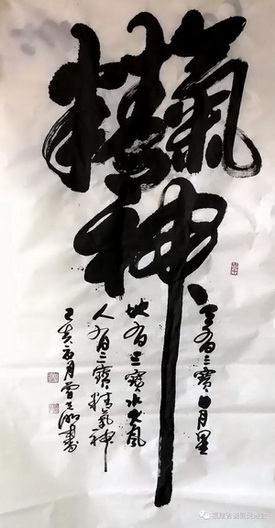 精氣神
天有三寶日月星
地有三寶水火風
人有三寶精氣神
己亥 月 書